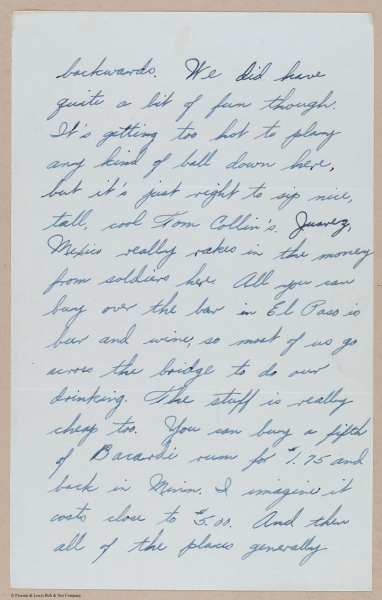 backwards. We did have
quite a bit of fun though.
It's getting too hot to play
any kind of ball down here,
but it's just right to sip nice,
tall, cool Tom Collin's. Juarez,
Mexico really rakes in the money
from soldiers here. All you can
buy over the bar in El Paso is
beer and wine, so most of us go
across the bridge to do our
drinking. The stuff is really
cheap too. You can buy a fifth
of Bacardi rum for $1.75 and
back in Minn. I imagine it
costs close to $5.00. And then
all of the places generally